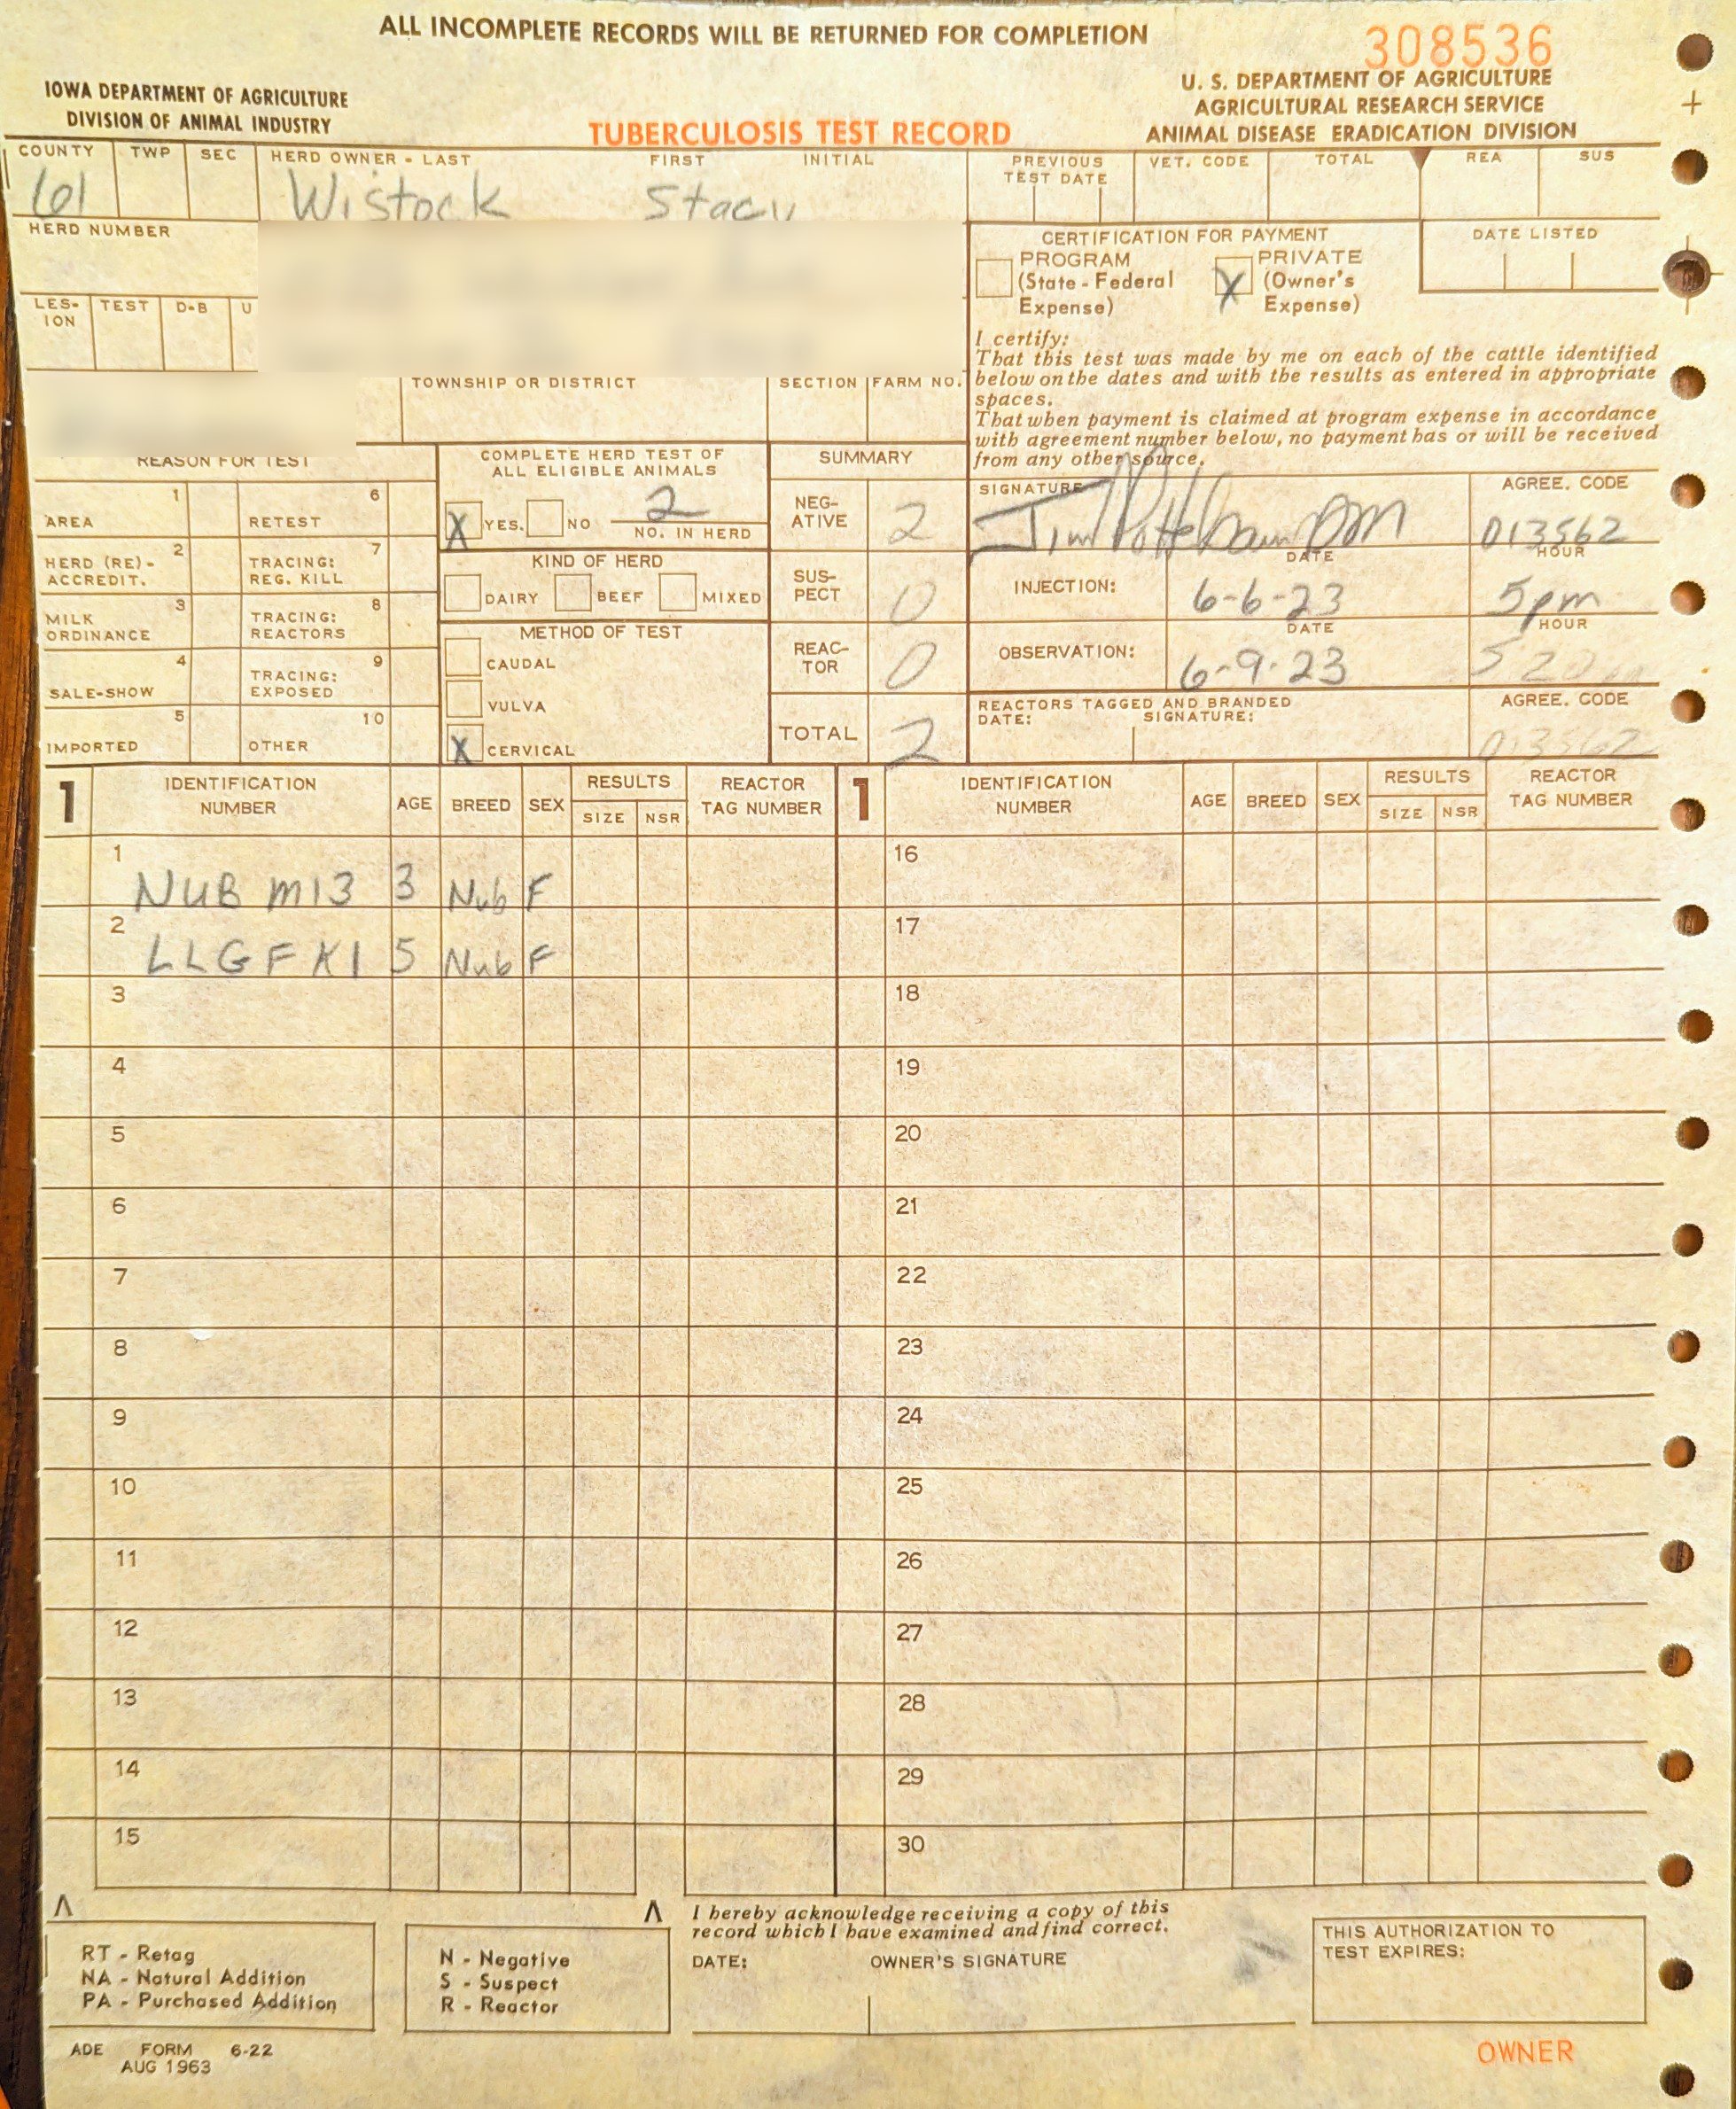 ALL INCOMPLETE RECORDS WILL BE RETURNED FOR COMPLETION
308536
IOWA DEPARTMENT OF AGRICULTURE
DIVISION OF ANIMAL INDUSTRY
TUBERCULOSIS TEST RECORD
U. S. DEPARTMENT OF AGRICULTURE
AGRICULTURAL RESEARCH SERVICE
ANIMAL DISEASE ERADICATION DIVISION
COUNTY TWP SEC HERD OWNER - LAST FIRST INITIAL
61 Wistock Stacy
PREVIOUS TEST DATE VET. CODE TOTAL REA SUS
HERD NUMBER
LES-ION TEST D-B U
CERTIFICATION FOR PAYMENT
PROGRAM (State - Federal Expense)
X PRIVATE (Owner's Expense)
DATE LISTED
I certify:
That this test was made by me on each of the cattle identified
below on the dates and with the results as entered in appropriate
spaces.
That when payment is claimed at program expense in accordance
with agreement number below, no payment has or will be received
from any other source.
TOWNSHIP OR DISTRICT SECTION FARM NO.
REASON FOR TEST
1 AREA 6 RETEST
2 HERD (RE)-ACCREDIT. 7 TRACING: REG. KILL
3 MILK ORDINANCE 8 TRACING: REACTORS
4 SALE-SHOW 9 TRACING: EXPOSED
5 IMPORTED 10 OTHER
COMPLETE HERD TEST OF
ALL ELIGIBLE ANIMALS
X YES. NO 2
NO. IN HERD
KIND OF HERD
DAIRY BEEF MIXED
METHOD OF TEST
CAUDAL
VULVA
X CERVICAL
SUMMARY
NEG-ATIVE 2
SUS-PECT 0
REAC-TOR 0
TOTAL 2
SIGNATURE AGREE. CODE
Jim DVM 013562
DATE HOUR
INJECTION: 6-6-23 5pm
DATE HOUR
OBSERVATION: 6-9-23 5 20
REACTORS TAGGED AND BRANDED AGREE. CODE
DATE: SIGNATURE:
013562
1 IDENTIFICATION NUMBER AGE BREED SEX RESULTS SIZE NSR REACTOR TAG NUMBER
1 IDENTIFICATION NUMBER AGE BREED SEX RESULTS SIZE NSR REACTOR TAG NUMBER
1 NUB M13 3 Nub F 16
2 LLGF K1 5 Nub F 17
3 18
4 19
5 20
6 21
7 22
8 23
9 24
10 25
11 26
12 27
13 28
14 29
15 30
RT - Retag
NA - Natural Addition
PA - Purchased Addition
N - Negative
S - Suspect
R - Reactor
I hereby acknowledge receiving a copy of this
record which I have examined and find correct.
DATE: OWNER'S SIGNATURE
THIS AUTHORIZATION TO
TEST EXPIRES:
ADE FORM 6-22
AUG 1963
OWNER